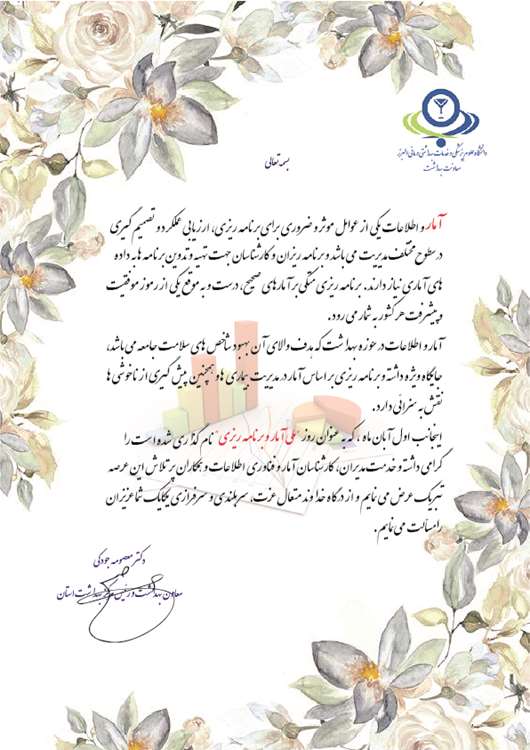 دانشگاه علوم پزشکی و خدمات بهداشتی درمانی البرز
معاونت بهداشت
بسمه تعالی
آمار و اطلاعات یکی از عوامل موثر و ضروری برای برنامه ریزی، ارزیابی عملکرد و تصمیم گیری
در سطوح مختلف مدیریت می باشد و برنامه ریزان و کارشناسان جهت تهیه و تدوین برنامه ها به داده
های آماری نیاز دارند. برنامه ریزی متکی بر آمارهای صحیح، درست و به موقع یکی از رموز موفقیت
و پیشرفت هر کشور به شمار می رود.
آمار و اطلاعات در حوزه بهداشت که هدف والای آن بهبود شاخص های سلامت جامعه می باشد،
جایگاه ویژه داشته و برنامه ریزی بر اساس آمار در مدیریت بیماری ها و همچنین پیش گیری از ناخوشی ها
نقش به سزائی دارد.
اینجانب اول آبان ماه ، که به عنوان روز "ملی آمار و برنامه ریزی" نام گذاری شده است را
گرامی داشته و خدمت مدیران، کارشناسان آمار و فناوری اطلاعات و همکاران پر تلاش این عرصه
تبریک عرض می نمایم و از درگاه خداوند متعال عزت، سربلندی و سرفرازی یکایک شما عزیزان
را مسألت می نمایم.
دکتر معصومه جودکی
معاون بهداشت و رئیس مرکز بهداشت استان